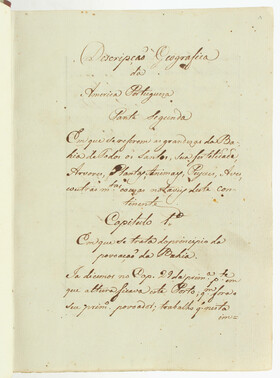 Descripçaõ Geografica
da
America Portugueza
Parte Segunda
Em que se referem as grandezas da Ba-
hia de Todos os Santos, sua fertilidade
Arvores, Plantas, Animaes, Peixes, Aves,
e outras m.tas cousas notaveis deste con-
tinente
Capitulo 1.º
Em que se trata do principio da
povoaçaõ da Bahia.
Ja dicemos no Cap. 29 da prim.ª p.te em
que altura ficava este Porto, q.m fora o
seu prim.º povoador; trabalho q. nesta